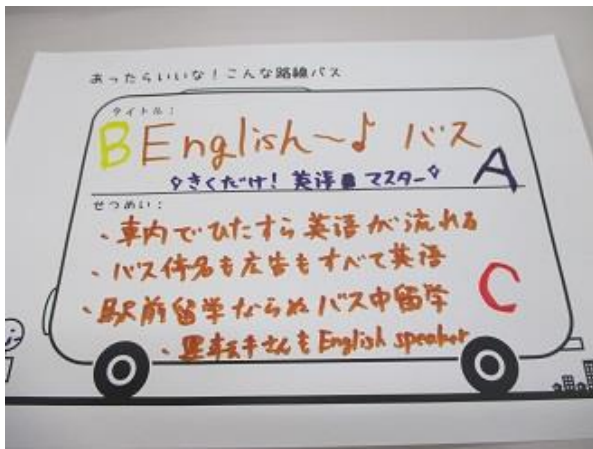 あったらいいな！こんな路線バス
タイトル：
B English〜♪ バス A
きくだけ！ 英語 マスター
せつめい：
・車内でひたすら英語が流れる
・バス停名も広告もすべて英語
・駅前留学ならぬバス中留学 C
・運転手さんもEnglish speaker